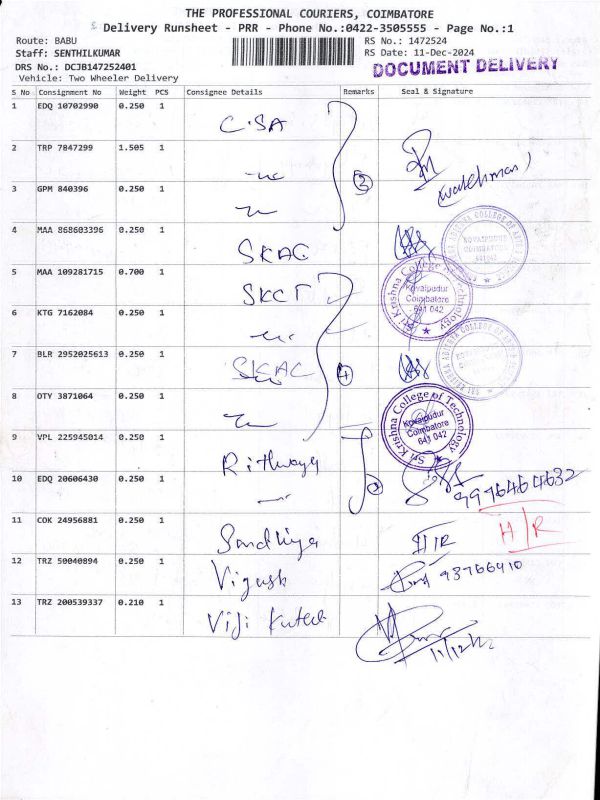 THE PROFESSIONAL COURIERS, COIMBATORE
Delivery Runsheet - PRR - Phone No.:0422-3505555 - Page No.:1
Route: BABU
Staff: SENTHILKUMAR
DRS No.: DCJB147252401
Vehicle: Two Wheeler Delivery
RS No.: 1472524
RS Date: 11-Dec-2024
DOCUMENT DELIVERY
S No Consignment No Weight PCS Consignee Details Remarks Seal & Signature
1 EDQ 10702990 0.250 1 C.SA
2 TRP 7847299 1.505 1
(watchman)
3 GPM 840396 0.250 1
4 MAA 868603396 0.250 1 SKAC
KOVAIPUDUR COIMBATORE 641 042
5 MAA 109281715 0.700 1 SKCT
Sri Krishna College of Technology Kovaipudur Coimbatore 641 042
6 KTG 7162084 0.250 1
7 BLR 2952025613 0.250 1 SKAC
8 OTY 3871064 0.250 1
Sri Krishna College of Technology Kovaipudur Coimbatore 641 042
9 VPL 225945014 0.250 1
10 EDQ 20606430 0.250 1
9976464632
H/R
11 COK 24956881 0.250 1 Sandhiya
12 TRZ 50040894 0.250 1
13 TRZ 200539337 0.210 1 Viji